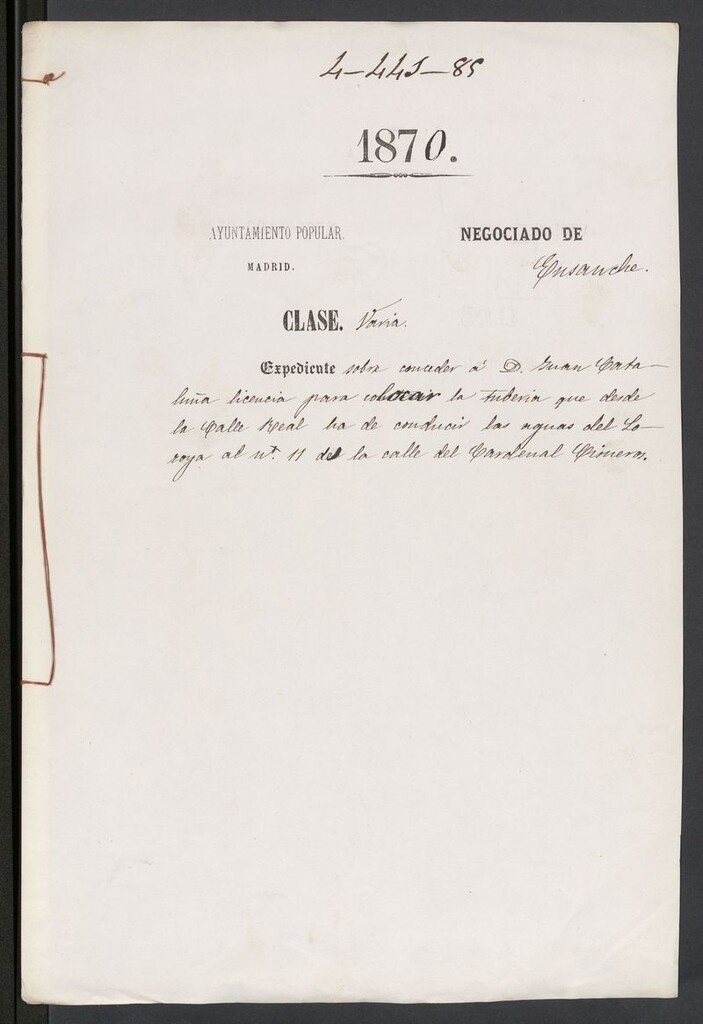 4-445-85
1870.
AYUNTAMIENTO POPULAR.
MADRID.
NEGOCIADO DE
Ensanche.
CLASE. Varia.
Expediente sobre conceder á D. Juan Cata-
luña licencia para colocar la tuberia que desde
la Calle Real ha de conducir las aguas del Lo-
zoya al nº. 11 de la calle del Cardenal Cisneros.